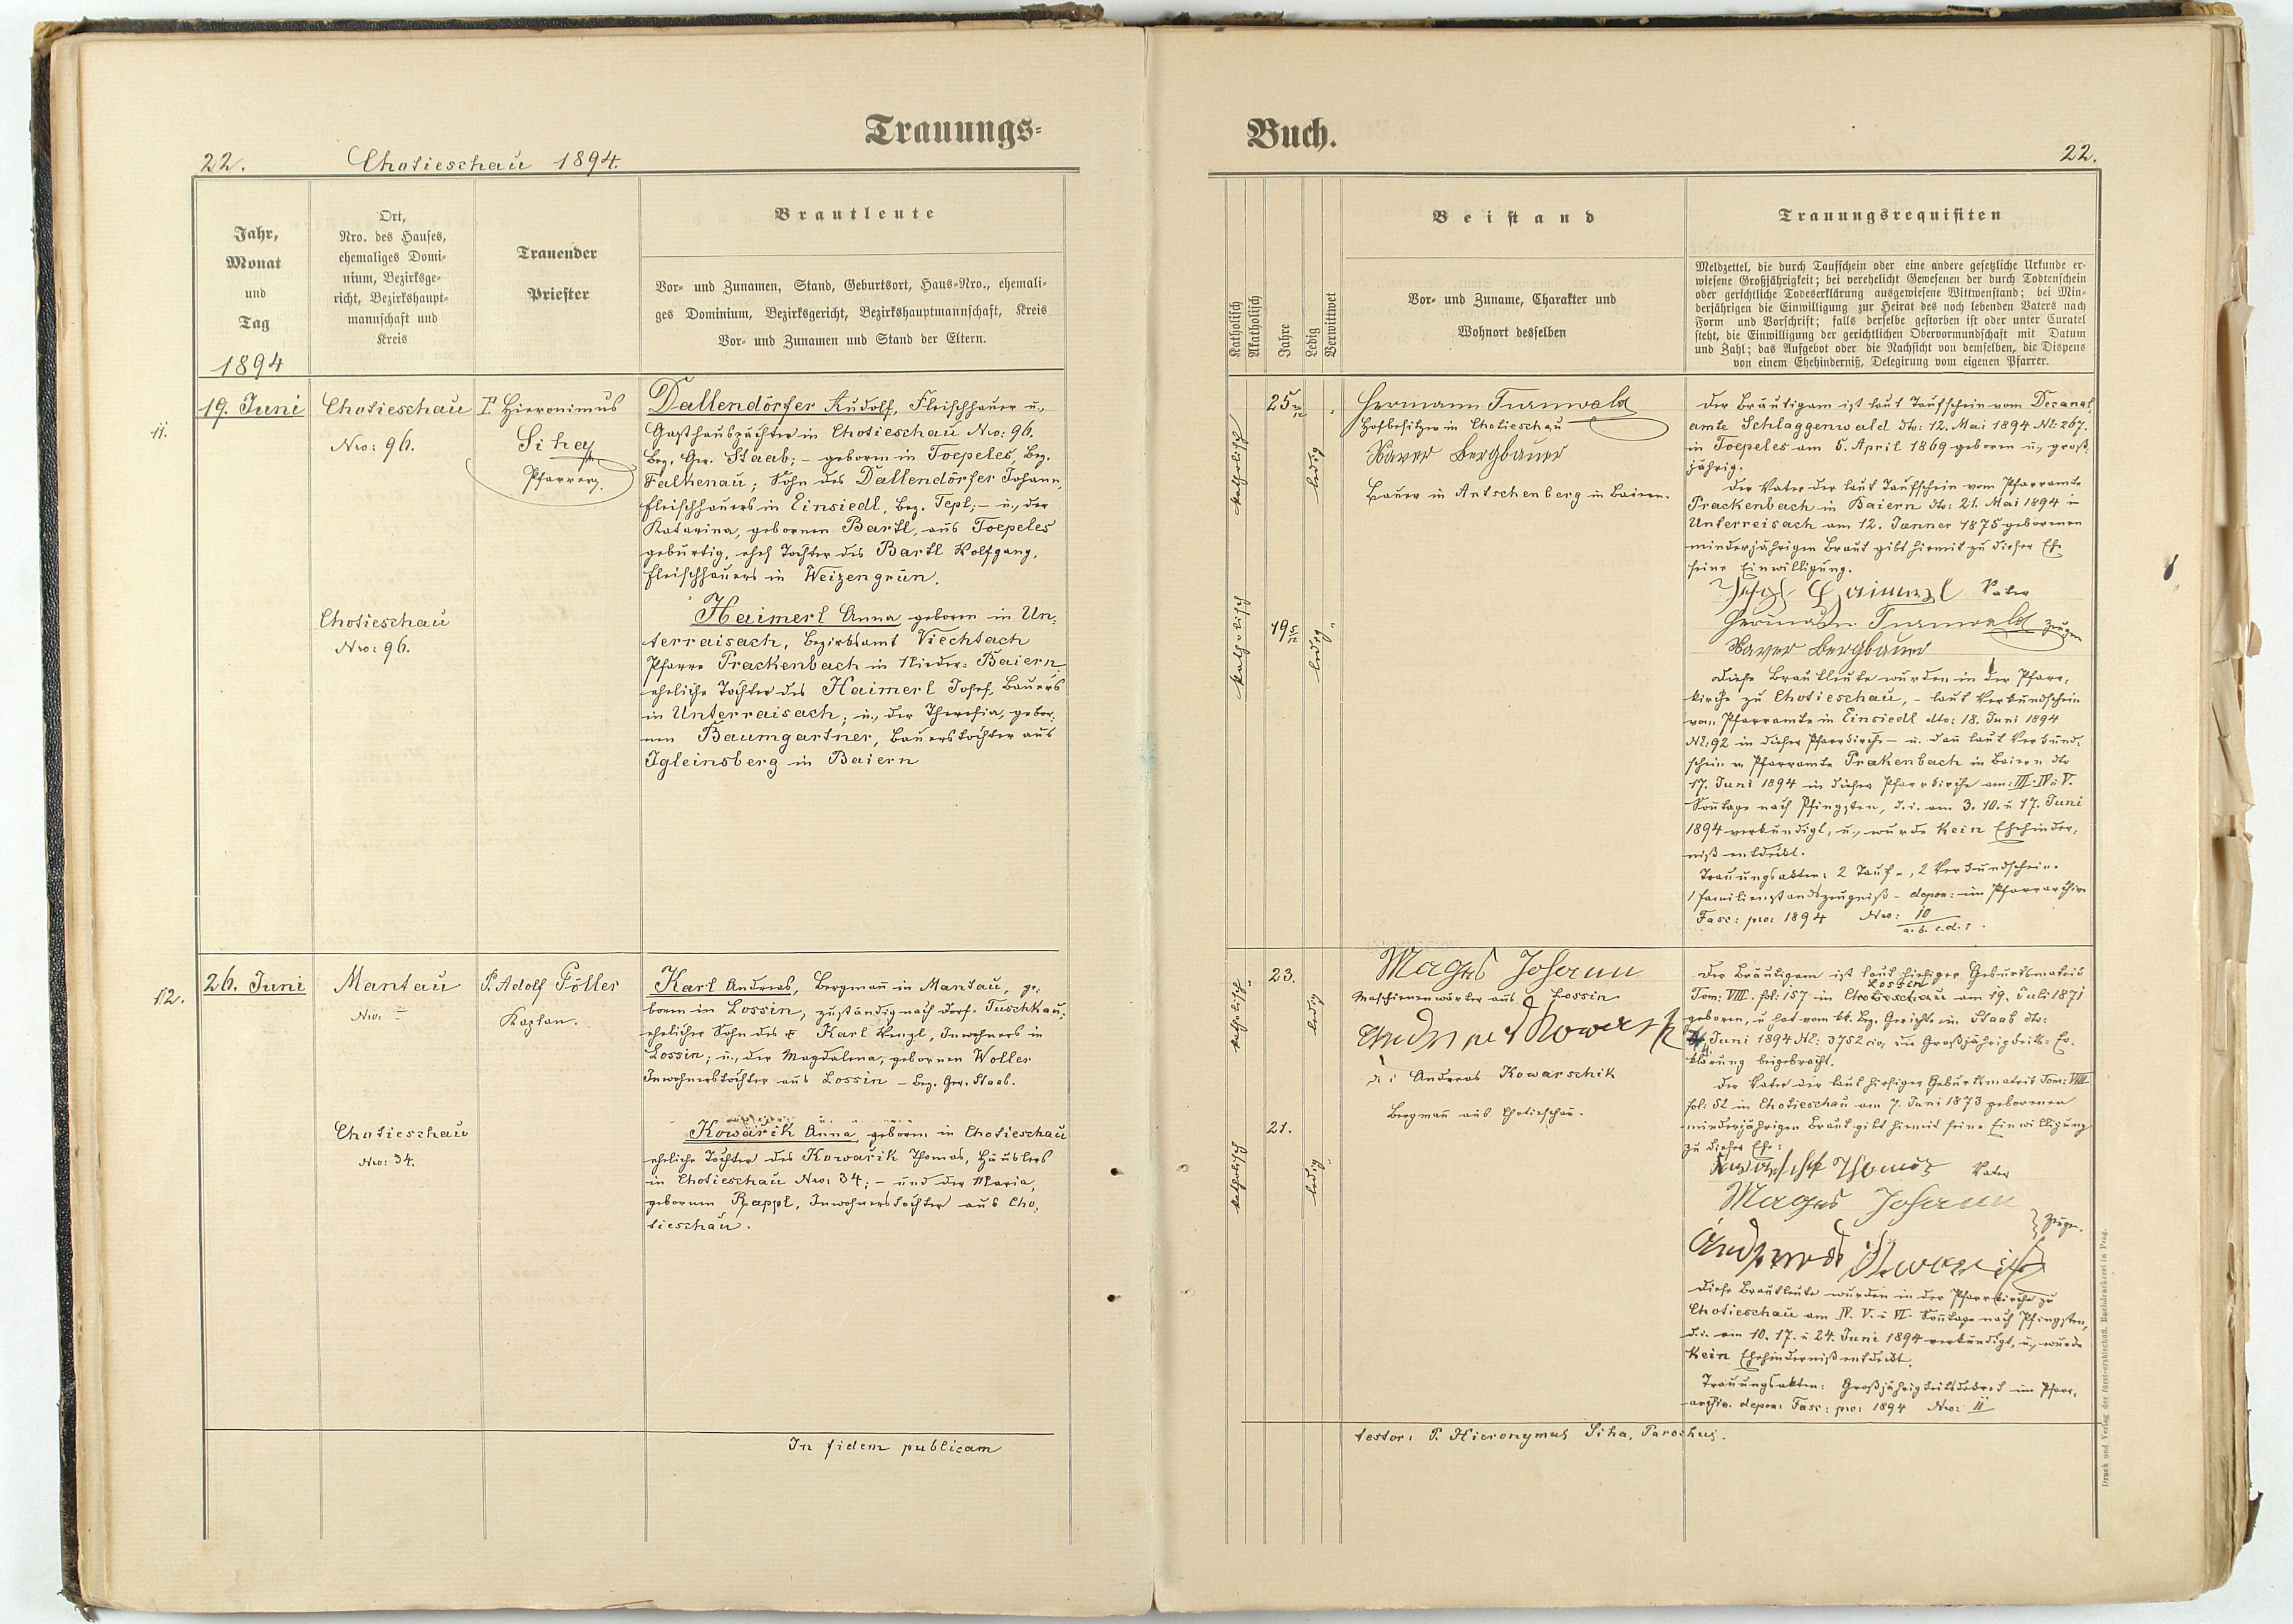 Trauungs-
22. Chotieschau 1894.
Jahr,
Monat
und
Tag
1894
Ort,
Nro. des Hauses,
ehemaliges Domi-
nium, Bezirksge-
richt, Bezirkshaupt-
mannschaft und
Kreis
Trauender
Priester
Brautleute
Vor- und Zunamen, Stand, Geburtsort, Haus-Nro., ehemali-
ges Dominium, Bezirksgericht, Bezirkshauptmannschaft, Kreis
Vor- und Zunamen und Stand der Eltern.
11.
19. Juni
Chotieschau
Nro: 96.
P. Hieronimus
Siha
Pfarrer
Dallendörfer Rudolf, Fleischhauer u.,
Gasthauspächter in Chotieschau Nro: 96.
Bez. Ger. Staab; – geboren in Toepeles, Bez.
Falkenau; Sohn des Dallendörfer Johann,
Fleischhauers in Einsiedl, Bez. Tepl; – u., der
Katarina, gebornen Bartl, aus Toepeles
gebürtig, ehel Tochter des Bartl Wolfgang,
Fleischhauers in Weizengrün.
Chotieschau
Nro: 96.
Haimerl Anna geboren in Un-
terraisach, Bezirksamt Viechtach
Pfarre Prackenbach in Nieder-Baiern
eheliche Tochter des Haimerl Josef, Bauers
in Unterraisach; u., der Theresia, gebor-
nen Baumgartner, Bauerstochter aus
Igleinsberg in Baiern
12.
26. Juni
Mantau
Nro: –
P. Adolf Föller
Kaplan.
Karl Andreas, Bergmañ in Mantau, ge-
boren in Lossin, zuständig nach Dorf-Tuschkau,
ehelicher Sohn des Karl Wenzl, Inwohners in
Lossin; u., der Magdalena, gebornen Woller
Inwohnerstochter aus Lossin – Bez. Ger. Staab.
Chotieschau
Nro: 34.
Kowařik Anna, geboren in Chotieschau
eheliche Tochter des Kowařik Thomas, Häuslers
in Chotieschau Nro: 34; – und der Maria,
gebornen Rappl, Inwohnerstochter aus Cho-
tieschau.
In fidem publicam
Buch.
22.
Katholisch
Akatholisch
Jahre
Ledig
Verwittwet
Beistand
Vor- und Zuname, Charakter und
Wohnort desselben
Trauungsrequisiten
Meldzettel, die durch Taufschein oder eine andere gesetzliche Urkunde er-
wiesene Großjährigkeit; bei verehelicht Gewesenen der durch Todtenschein
oder gerichtliche Todeserklärung ausgewiesene Wittwenstand; bei Min-
derjährigen die Einwilligung zur Heirat des noch lebenden Vaters nach
Form und Vorschrift; falls derselbe gestorben ist oder unter Curatel
steht, die Einwilligung der gerichtlichen Obervormundschaft mit Datum
und Zahl; das Aufgebot oder die Nachsicht von demselben, die Dispens
von einem Ehehinderniß, Delegirung vom eigenen Pfarrer.
katholisch
25 2/12
ledig
Hermann Turnwald
Hofbesitzer in Chotieschau
Xaver Bergbauer
Bauer in Antschenberg in Baiern.
katholisch
19 5/12
ledig
Der Bräutigam ist laut Taufschein vom Decanat-
amte Schlaggenwald dto: 12. Mai 1894 No: 267.
in Toepeles am 5. April 1869 geboren u., groß-
jährig.
Der Vater der laut Taufschein vom Pfarramte
Prackenbach in Baiern dto: 21. Mai 1894 in
Unterreisach am 12. Jänner 1875 geborenen
minderjährigen Braut gibt hiemit zu dieser Ehe
seine Einwilligung.
Josef Haimerl Vater
Hermann Turnwald Zeugen
Xaver Bergbauer
Diese Brautleute wurden in der Pfarr-
kirche zu Chotieschau, – laut Verkündschein
vom Pfarramte in Einsiedl dto: 18. Juni 1894
No: 92 in dieser Pfarrkirche – u. dañ laut Verkünd-
schein v. Pfarramte Prakenbach in Baiern dto
17. Juni 1894 in dieser Pfarrkirche am: III. IV. u V.
Soñtage nach Pfingsten, d. i. am 3. 10. u 17. Juni
1894 verkündigt, u., wurde kein Ehehinder-
niß entdeckt.
Trauungsakten: 2 Tauf-, 2 Verkündscheine
1 Familienstandszeugniß – depon: im Pfarrarchive
Fasc: pro: 1894 Nro: 10
a. b. c. d. e.
katholisch
23.
ledig
Magus Johann
Maschienenwärter aus Lossin
Andreas Kowarschik
d: i Andreas Kowarschik
Bergmañ aus Chotieschau.
katholisch
21.
ledig
Der Bräutigam ist laut hiesiger Geburtsmatrik
Tom: VIII. fol: 157 in Chotieschau Lossin am 19. Juli 1871
geboren, u hat vom kk. Bez. Gerichte in Staab dto:
Juni 1894 No: 3752 civ. die Großjährigkeits-Er-
klärung beigebracht.
Der Vater der laut hiesiger Geburtsmatrik Tom: VIII
fol: 52 in Chotieschau am 7. Juni 1873 geborenen
minderjährigen Braut gibt hiemit seine Einwilligung
zu dieser Ehe:
Thomas Vater
Magus Johann
Zeugen.
Andreas
Diese Brautleute wurden in der Pfarrkirche zu
Chotieschau am IV. V. u VI. Soñtage nach Pfingsten,
d. i. am 10. 17. u 24. Juni 1894 verkündigt, u., wurde
kein Ehehinderniß entdeckt.
Trauungsakten: Großjährigkeitsdekret im Pfarr-
archiv. depon: Fasc: pro: 1894 Nro: 11
testor: P. Hieronymus Siha, Parochus.
Druck und Verlag der fürst-erzbischöfl. Buchdruckerei in Prag.